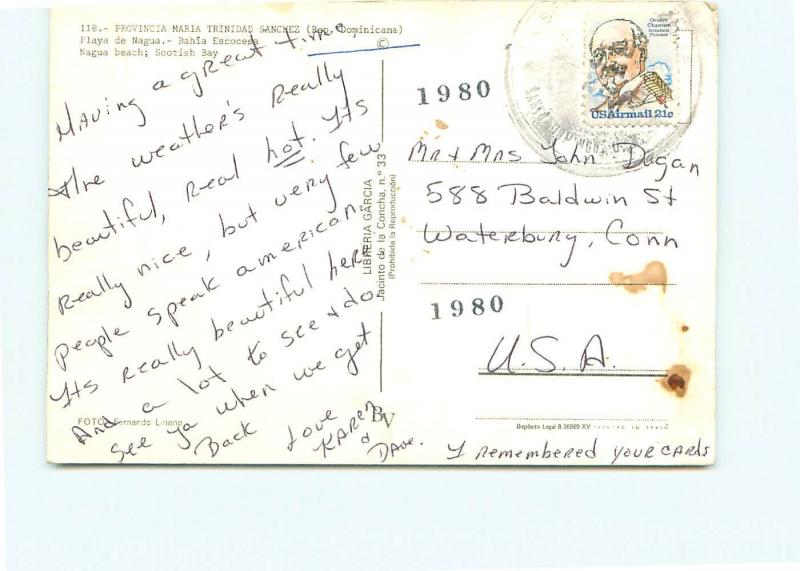 118.- PROVINCIA MARIA TRINIDAD SANCHEZ (Rep. Dominicana)
Playa de Nagua.- Bahía Escocesa
Nagua beach; Scotish Bay
©
Having a great time
the weather's Really
beautiful, real hot. Its
Really nice, but very few
people speak american.
Its really beautiful here
And a lot to see & do
See ya when we get
Back
Love
KAREN
&
DAVE.
FOTO: Fernando Liriano
LIBRERIA GARCIA
Jacinto de la Concha, n.º 33
(Prohibida la Reproducción)
BV
1980
Octave
Chanute
Aviation
Pioneer
USAirmail 21c
Mr + Mrs John Dugan
588 Baldwin St
Waterbury, Conn
1980
U.S.A.
Depósito Legal B.36989-XV PRINTED IN SPAIN
I remembered YOUR CARDS